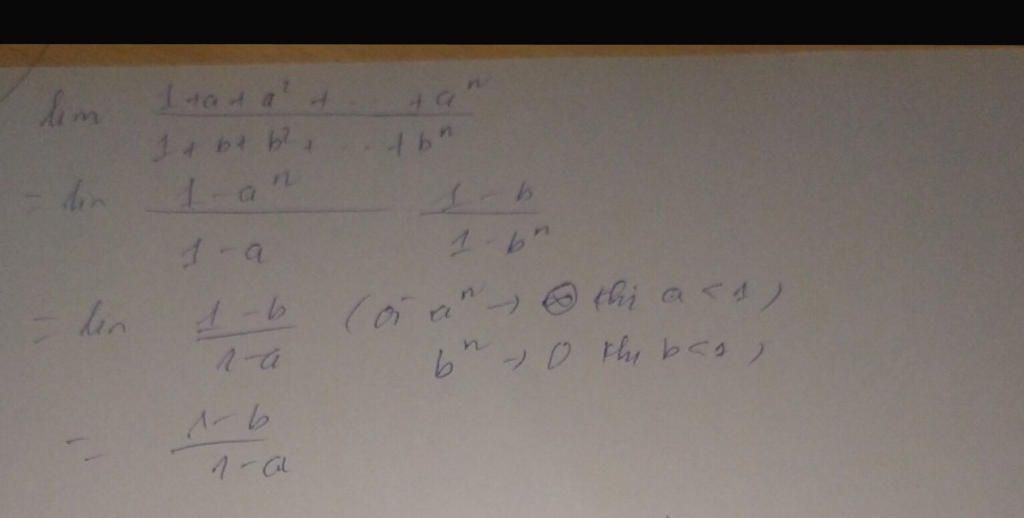 lim (1+a+a²+...+aⁿ)/(1+b+b²+...+bⁿ)
= lim (1-aⁿ)/(1-a) (1-b)/(1-bⁿ)
= lim (1-b)/(1-a) (vì aⁿ → 0 khi a<1)
bⁿ → 0 khi b<1)
= (1-b)/(1-a)